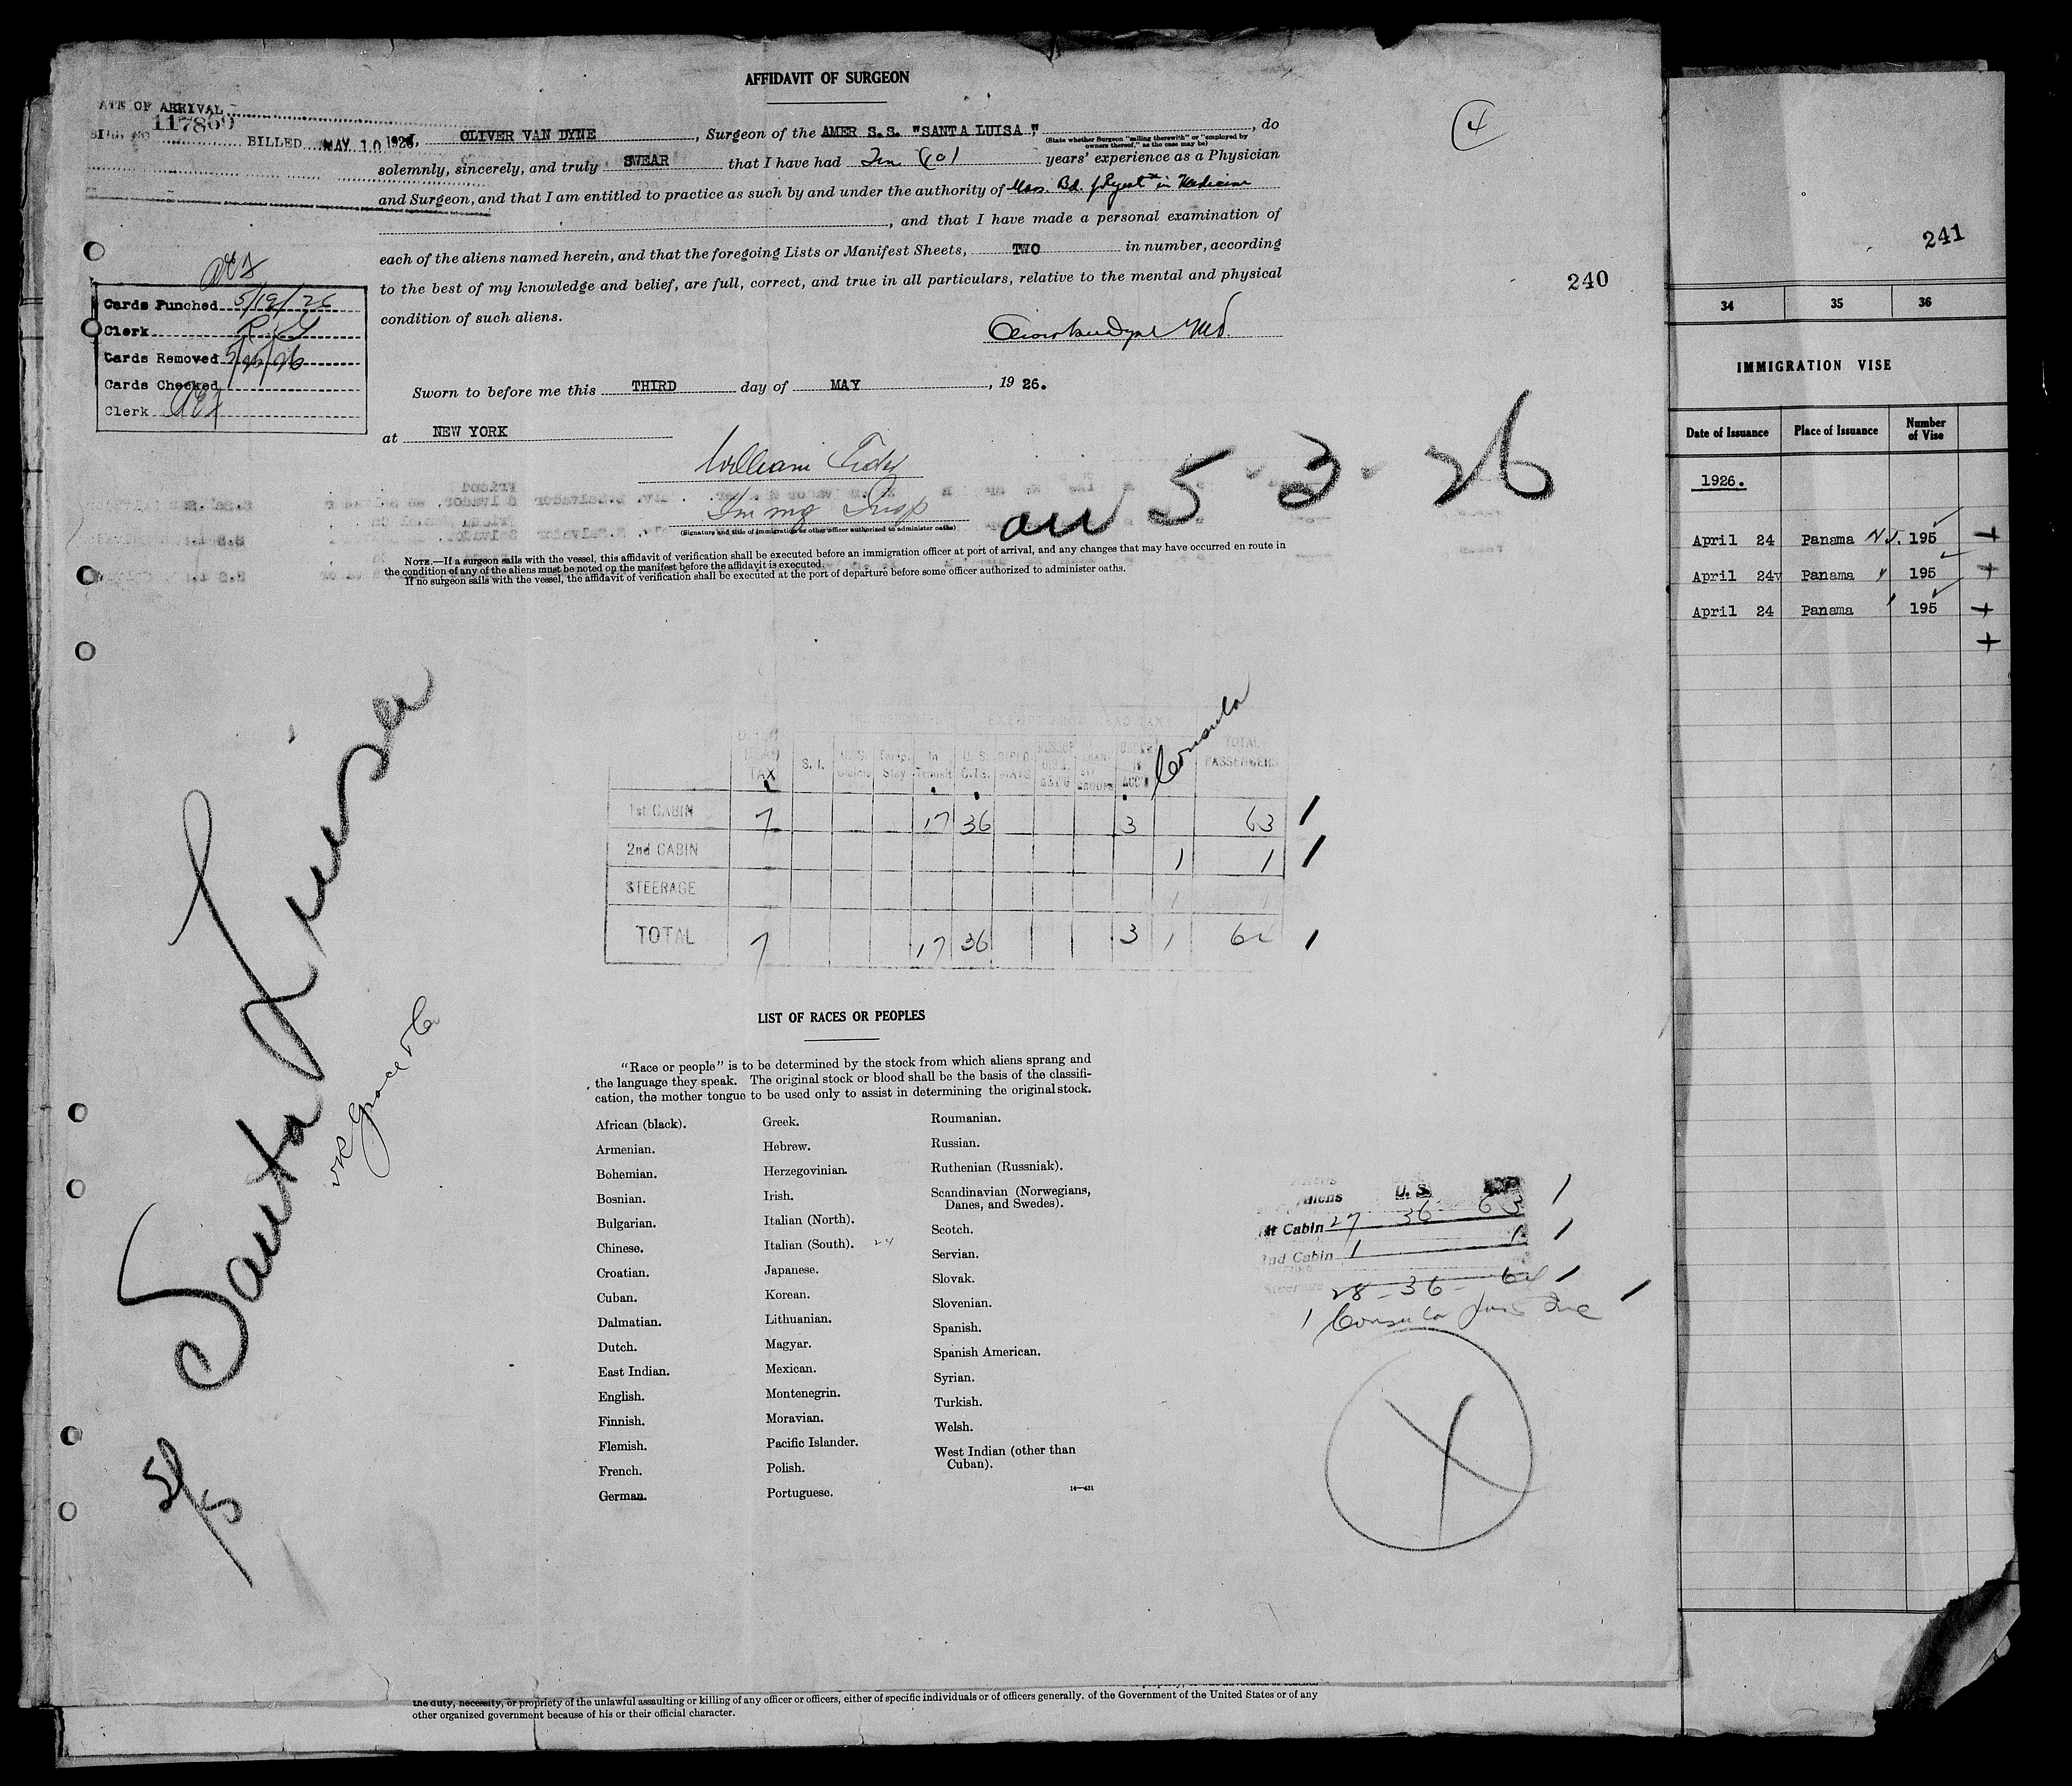 AFFIDAVIT OF SURGEON
ATE OF ARRIVAL
117869
BILLED MAY 10 1926
OLIVER VAN DYNE, Surgeon of the AMER S.S. "SANTA LUISA", do
(State whether Surgeon "sailing therewith" or "employed by
owners thereof," as the case may be)
solemnly, sincerely, and truly SWEAR that I have had Ten (10) years' experience as a Physician
and Surgeon, and that I am entitled to practice as such by and under the authority of Mass. Bd. of Regist'n in Medicine
, and that I have made a personal examination of
each of the aliens named herein, and that the foregoing Lists or Manifest Sheets, TWO in number, according
to the best of my knowledge and belief, are full, correct, and true in all particulars, relative to the mental and physical
condition of such aliens.
Sworn to before me this THIRD day of MAY, 19 26.
at NEW YORK
William
Immg Insp
(Signature and title of immigration or other officer authorized to administer oaths)
arr 5-3-26
NOTE.—If a surgeon sails with the vessel, this affidavit of verification shall be executed before an immigration officer at port of arrival, and any changes that may have occurred en route in
the condition of any of the aliens must be noted on the manifest before the affidavit is executed.
If no surgeon sails with the vessel, the affidavit of verification shall be executed at the port of departure before some officer authorized to administer oaths.
4
240
Cards Punched 5/19/26
Clerk
Cards Removed
Cards Checked
Clerk
Santa Luisa
5/5
TAX S. I. Stay In Transit U. S. C.Ts. Consula TOTAL PASSENGERS
1st CABIN 7 17 36 3 63
2nd CABIN 1 1
STEERAGE
TOTAL 7 17 36 3 1 64
LIST OF RACES OR PEOPLES
"Race or people" is to be determined by the stock from which aliens sprang and
the language they speak. The original stock or blood shall be the basis of the classifi-
cation, the mother tongue to be used only to assist in determining the original stock.
African (black).
Armenian.
Bohemian.
Bosnian.
Bulgarian.
Chinese.
Croatian.
Cuban.
Dalmatian.
Dutch.
East Indian.
English.
Finnish.
Flemish.
French.
German.
Greek.
Hebrew.
Herzegovinian.
Irish.
Italian (North).
Italian (South). 24
Japanese.
Korean.
Lithuanian.
Magyar.
Mexican.
Montenegrin.
Moravian.
Pacific Islander.
Polish.
Portuguese.
Roumanian.
Russian.
Ruthenian (Russniak).
Scandinavian (Norwegians,
Danes, and Swedes).
Scotch.
Servian.
Slovak.
Slovenian.
Spanish.
Spanish American.
Syrian.
Turkish.
Welsh.
West Indian (other than
Cuban).
14—431
U. S.
Cabin 27 36 63
2nd Cabin 1 1
28-36-64
the duty, necessity, or propriety of the unlawful assaulting or killing of any officer or officers, either of specific individuals or of officers generally. of the Government of the United States or of any
other organized government because of his or their official character.
241
34 35 36
IMMIGRATION VISE
Date of Issuance Place of Issuance Number of Vise
1926.
April 24 Panama 195
April 24 Panama 195
April 24 Panama 195